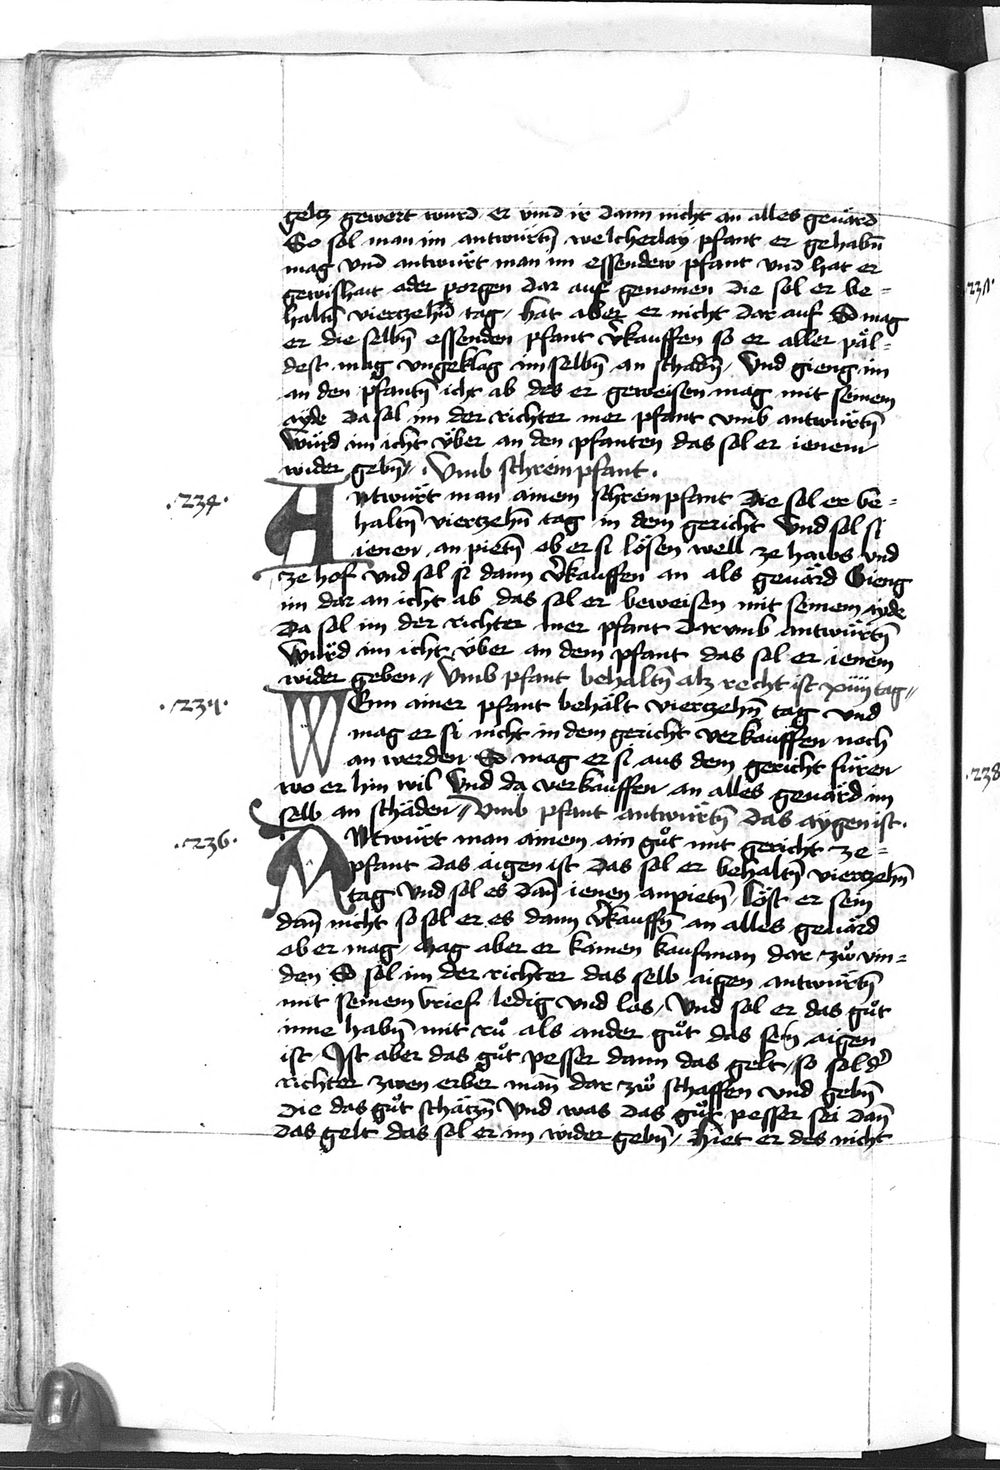 geltz gewert wurd er vind ir dann nicht an alles geuärd
So sol man im antwürtn̄ welcherlay pfant er gehabn̄
mag vnd antwürt man im essendew pfant vnd hat er
gewishait oder porgen dar auf genomen die sol er be=
haltn̄ viertzehn̄ tag / hat aber er nicht dar auf So mag
er die selbn̄ essenden pfant v̓kauffen so er aller päl=
dest mag vngeklag im selbn̄ an schadn̄ / Vnd gieng im
an den pfantn̄ icht ab des er geweisen mag mit seinem
ayde Da sol im der richter mer pfant vmb antwürtn̄
Würd im icht v̈ber an den pfanten das sol er ienem
wider gebn̄ / . Vmb schreinpfant .
.234.
ANtwürt man ainem schreinpfant Die sol er be=
haltn̄ viertzehn̄ tag in dem gericht Vnd sol si
ienen an pietn̄ ob er si lösen well ze haws vnd
ze hof vnd sol si dann v̓kauffen an als geuärd Gieng
im dar an icht ab das sol er beweisen mit seinem ayde
Da sol im der richter mer pfant darvmb antwürtn̄
Würd im icht v̈ber an dem pfant das sol er ienem
wider geben // Vmb pfant behaltn̄ alz recht ist xiiij tag //
.235.
WEnn ainer pfant behält viertzehn̄ tag vnd
mag er si nicht in dem gericht verkauffen noch
an werden So mag er si aus dem gericht füren
wo er hin wil Vnd da verkauffen an alles geuärd im
selb an schäden // Vmb pfant antwürtn̄ das aygen ist .
.236.
ANtwürt man ainem ain gůt mit gericht ze=
pfant das aigen ist das sol er behaltn̄ viertzehn̄
tag Vnd sol es dan̄ ienen anpietn̄ / Löst er sein
dan̄ nicht so sol er es dann v̓kauffn̄ an alles geuärd
ob er mag / Mag aber er kainen kaufman dar zwͦ vin=
den So sol im der richter das selb aigen antwürtn̄
mit seinem brief ledig vnd los / Vnd sol er das gůt
inne habn̄ mit rů als ander gůt das sein aigen
ist / Ist aber das gůt pesser dann das gelt / so sol d̓
richter zwen erber man̄ dar zwͦ schaffen vnd gebn̄
die das gůt schätzn̄ Vnd was das gůt pesser sei dan̄
das gelt das sol er im wider gebn̄ / Hiet er des nicht
.238